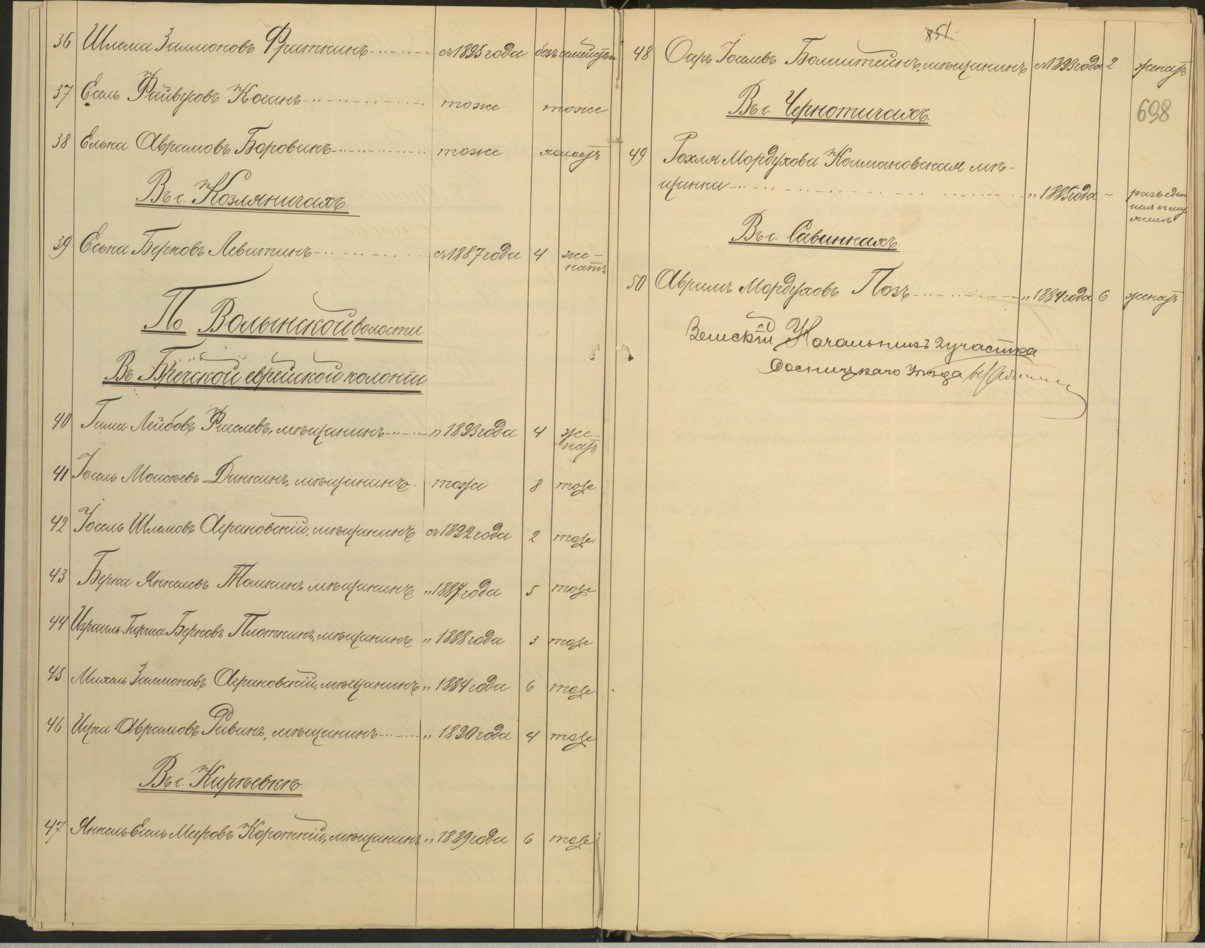 36 Шлема Залмоновъ Фрыткинъ съ 1895 года безсемейный
37 Есель Файвусовъ Косинъ тоже тоже
38 Елька Аврамовъ Боровикъ тоже холостъ
Въ с. Козляничахъ
39 Еська Берковъ Левиткинъ съ 1887 года 4 же-
натъ
По Волынской волости
Въ Брѣчской еврейской колоніи
40 Гилель Лейбовъ мѣщанинъ " 1893 года 4 же-
натъ
41 Іосель Моисѣевъ Динкинъ, мѣщанинъ тоже 8 тоже
42 Іосель Шлемовъ Аграновскій, мѣщанинъ съ 1892 года 2 тоже
43 Берка Янкелевъ Толкинъ мѣщанинъ " 1887 года 5 тоже
44 Израиль Гирша Берковъ Плоткинъ, мѣщанинъ " 1888 года 3 тоже
45 Михель Залмоновъ Аграновскій, мѣщанинъ " 1884 года 6 тоже
46 Ицка Аврамовъ Ривинъ, мѣщанинъ " 1890 года 4 тоже
Въ с. Кирѣевкѣ
47 Янкель Есель Меировъ Короткій, мѣщанинъ " 1889 года 6 тоже
851
48 Іоселевъ мѣщанинъ съ 1893 года 2 женатъ
Въ с. Чернотичахъ
698
49 Рохля Мордухова Колмановская мѣ-
щанка " 1885 года – разведен
ная съ му
жемъ
Въ с. Савинкахъ
50 Аврамъ Мордуховъ Позъ " 1884 года 6 женатъ
Земскій Начальникъ 2 участка
Сосницкаго Уѣзда